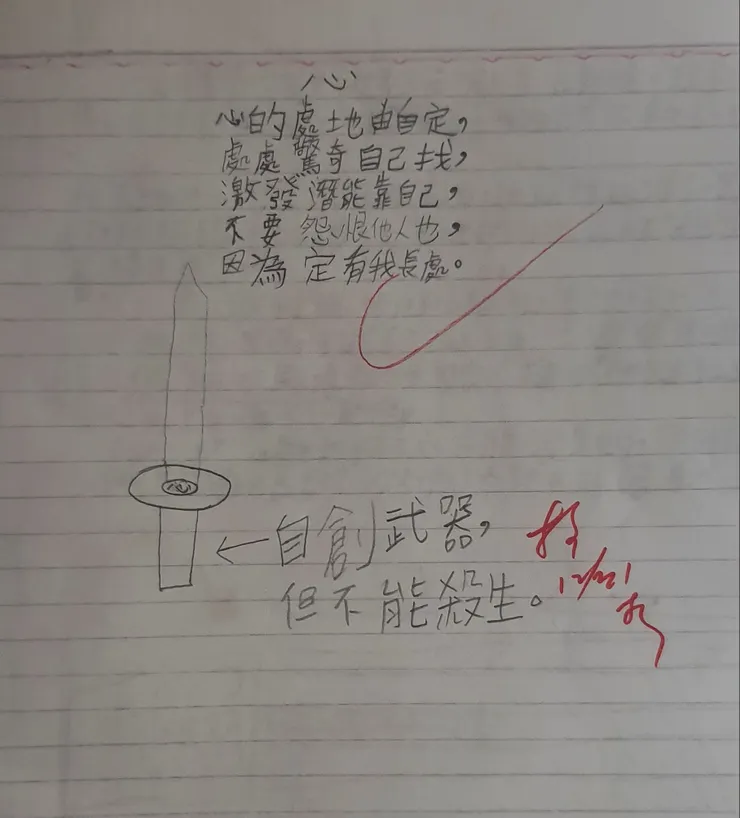 心
心的處地由自定，
處處驚奇自己找，
激發潛能靠自己，
不要怨恨他人也，
因為定有我長處。
心
←自創武器，
但不能殺生。
12/21